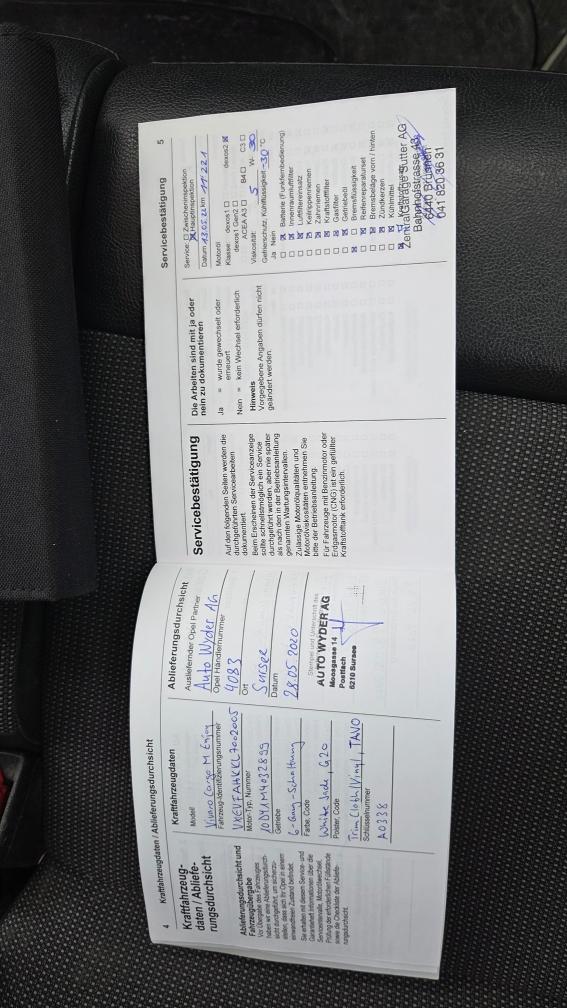 4
Kraftfahrzeugdaten / Ablieferungsdurchsicht
Kraftfahrzeug-
daten / Abliefe-
rungsdurchsicht
Ablieferungsdurchsicht und
Fahrzeugübergabe
Vor Übergabe des Fahrzeuges
haben wir eine Ablieferungsdurch-
sicht durchgeführt, um sicherzu-
stellen, dass sich Ihr Opel in einem
einwandfreien Zustand befindet.
Sie erhalten mit diesem Service- und
Garantieheft Informationen über die
Serviceintervalle, Motorölwechsel,
Prüfung der erforderlichen Füllstände
sowie die Checkliste der Abliefe-
rungsdurchsicht.
Kraftfahrzeugdaten
Modell
Vivaro Cargo M Enjoy
Fahrzeug-Identifizierungsnummer
VXEVFAHKKL7002005
Motor-Typ, Nummer
10DY1M4032899
Getriebe
6-Gang-Schaltung
Farbe, Code
White Jade, G20
Polster, Code
Trim Cloth/Vinyl, TAVO
Schlüsselnummer
A0338
Ablieferungsdurchsicht
Ausliefernder Opel Partner
Auto Wyder AG
Opel Händlernummer
4083
Ort
Sursee
Datum
28.05.2020
Stempel und Unterschrift des
AUTO WYDER AG
Moosgasse 14
Postfach
6210 Sursee
Servicebestätigung
Auf den folgenden Seiten werden die
durchgeführten Servicearbeiten
dokumentiert.
Beim Erscheinen der Serviceanzeige
sollte schnellstmöglich ein Service
durchgeführt werden, aber nie später
als nach den in der Betriebsanleitung
genannten Wartungsintervallen.
Zulässige Motorölqualitäten und
Motorölviskositäten entnehmen Sie
bitte der Betriebsanleitung.
Für Fahrzeuge mit Benzinmotor oder
Erdgasmotor (CNG) ist ein gefüllter
Kraftstofftank erforderlich.
Die Arbeiten sind mit ja oder
nein zu dokumentieren
Ja = wurde gewechselt oder
erneuert
Nein = kein Wechsel erforderlich
Hinweis
Vorgegebene Angaben dürfen nicht
geändert werden.
Servicebestätigung 5
Service: ☐ Zwischeninspektion
☒ Hauptinspektion
Datum 13.05.22 km 11'221
Motoröl
Klasse: dexos1 ☐ dexos2 ☒
dexos1 Gen2 ☐
ACEA A3 ☐ B4 ☐ C3 ☐
Viskosität: 5 W- 30
Gefrierschutz, Kühlflüssigkeit -30 °C
Ja Nein
☐ ☒ Batterie (Funkfernbedienung)
☐ ☒ Innenraumluftfilter
☐ ☒ Luftfiltereinsatz
☐ ☒ Keilrippenriemen
☐ ☒ Zahnriemen
☐ ☒ Kraftstofffilter
☐ ☒ Gasfilter
☐ ☒ Getriebeöl
☒ ☐ Bremsflüssigkeit
☐ ☒ Reifenreparaturset
☐ ☒ Bremsbeläge vorn / hinten
☐ ☒ Zündkerzen
☐ ☒ Kühlmittel
Zentralgarage Sutter AG
Bahnhofstrasse
6440 Brunnen
041 820 36 31